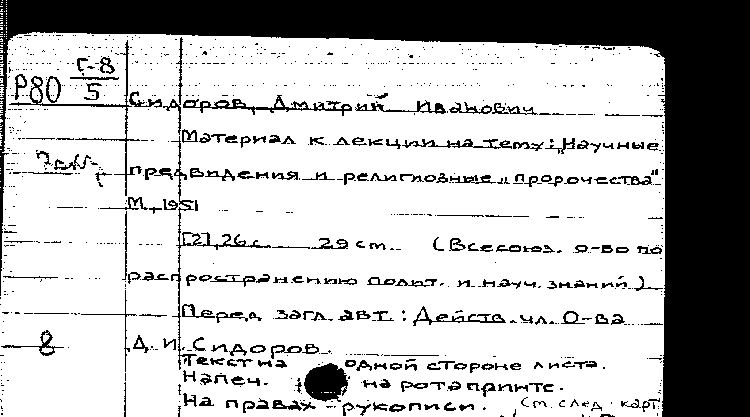 Г-8
Р80 5
Сидоров, Дмитрий Иванович
Материал к лекции на тему: „Научные
предвидения и религиозные „пророчества"
М., 1951
[2], 26 с. 29 см. (Всесоюз. о-во по
распространению полит. и науч. знаний)
Перед загл. авт.: Действ. чл. О-ва
8 Д. И. Сидоров.
Текст на одной стороне листа.
Напеч. на ротапринте.
На правах рукописи. (См. след. карт